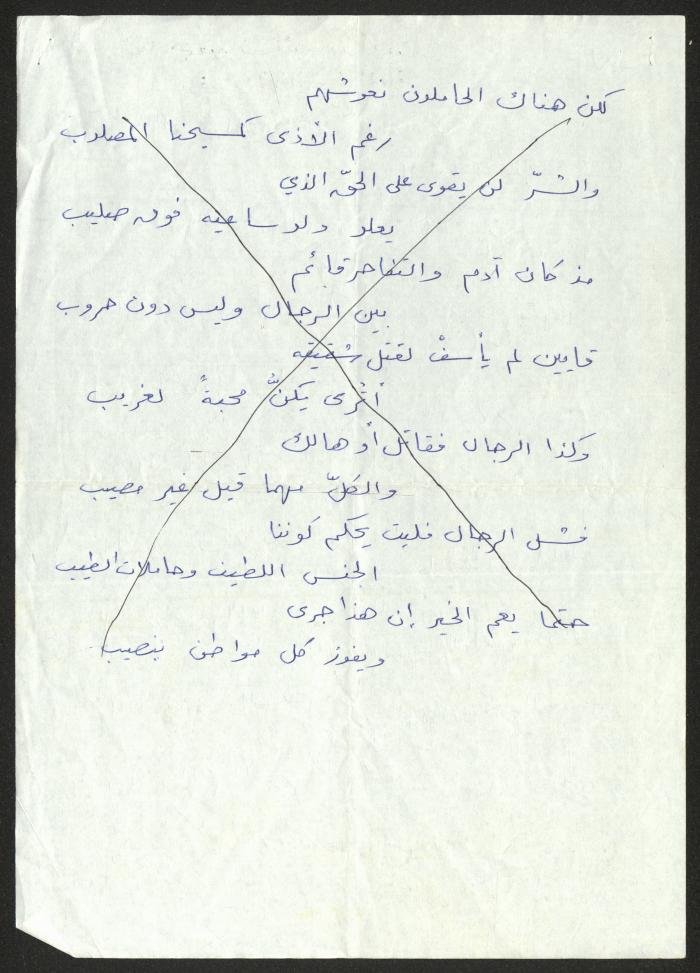 لكن هناك الحاملون نعوشهم
رغم الأذى كمسيحنا المصلوب
والشرّ لن يقوى على الحقّ الذي
يعلو ولو ساعيه فوق صليب
مذ كان آدم والتناحر قائم
بين الرجال وليس دون حروب
قايين لم يأسفْ لقتل شقيقه
أتُرى يكنُّ محبةً لغريب
وكذا الرجال فقاتل أو هالك
والكلّ مهما قيل غير مصيب
فشل الرجال فليت يحكم كوننا
الجنس اللطيف وحاملات الطيب
حتما يعم الخير إن هذا جرى
ويفوز كل مواطن بنصيب